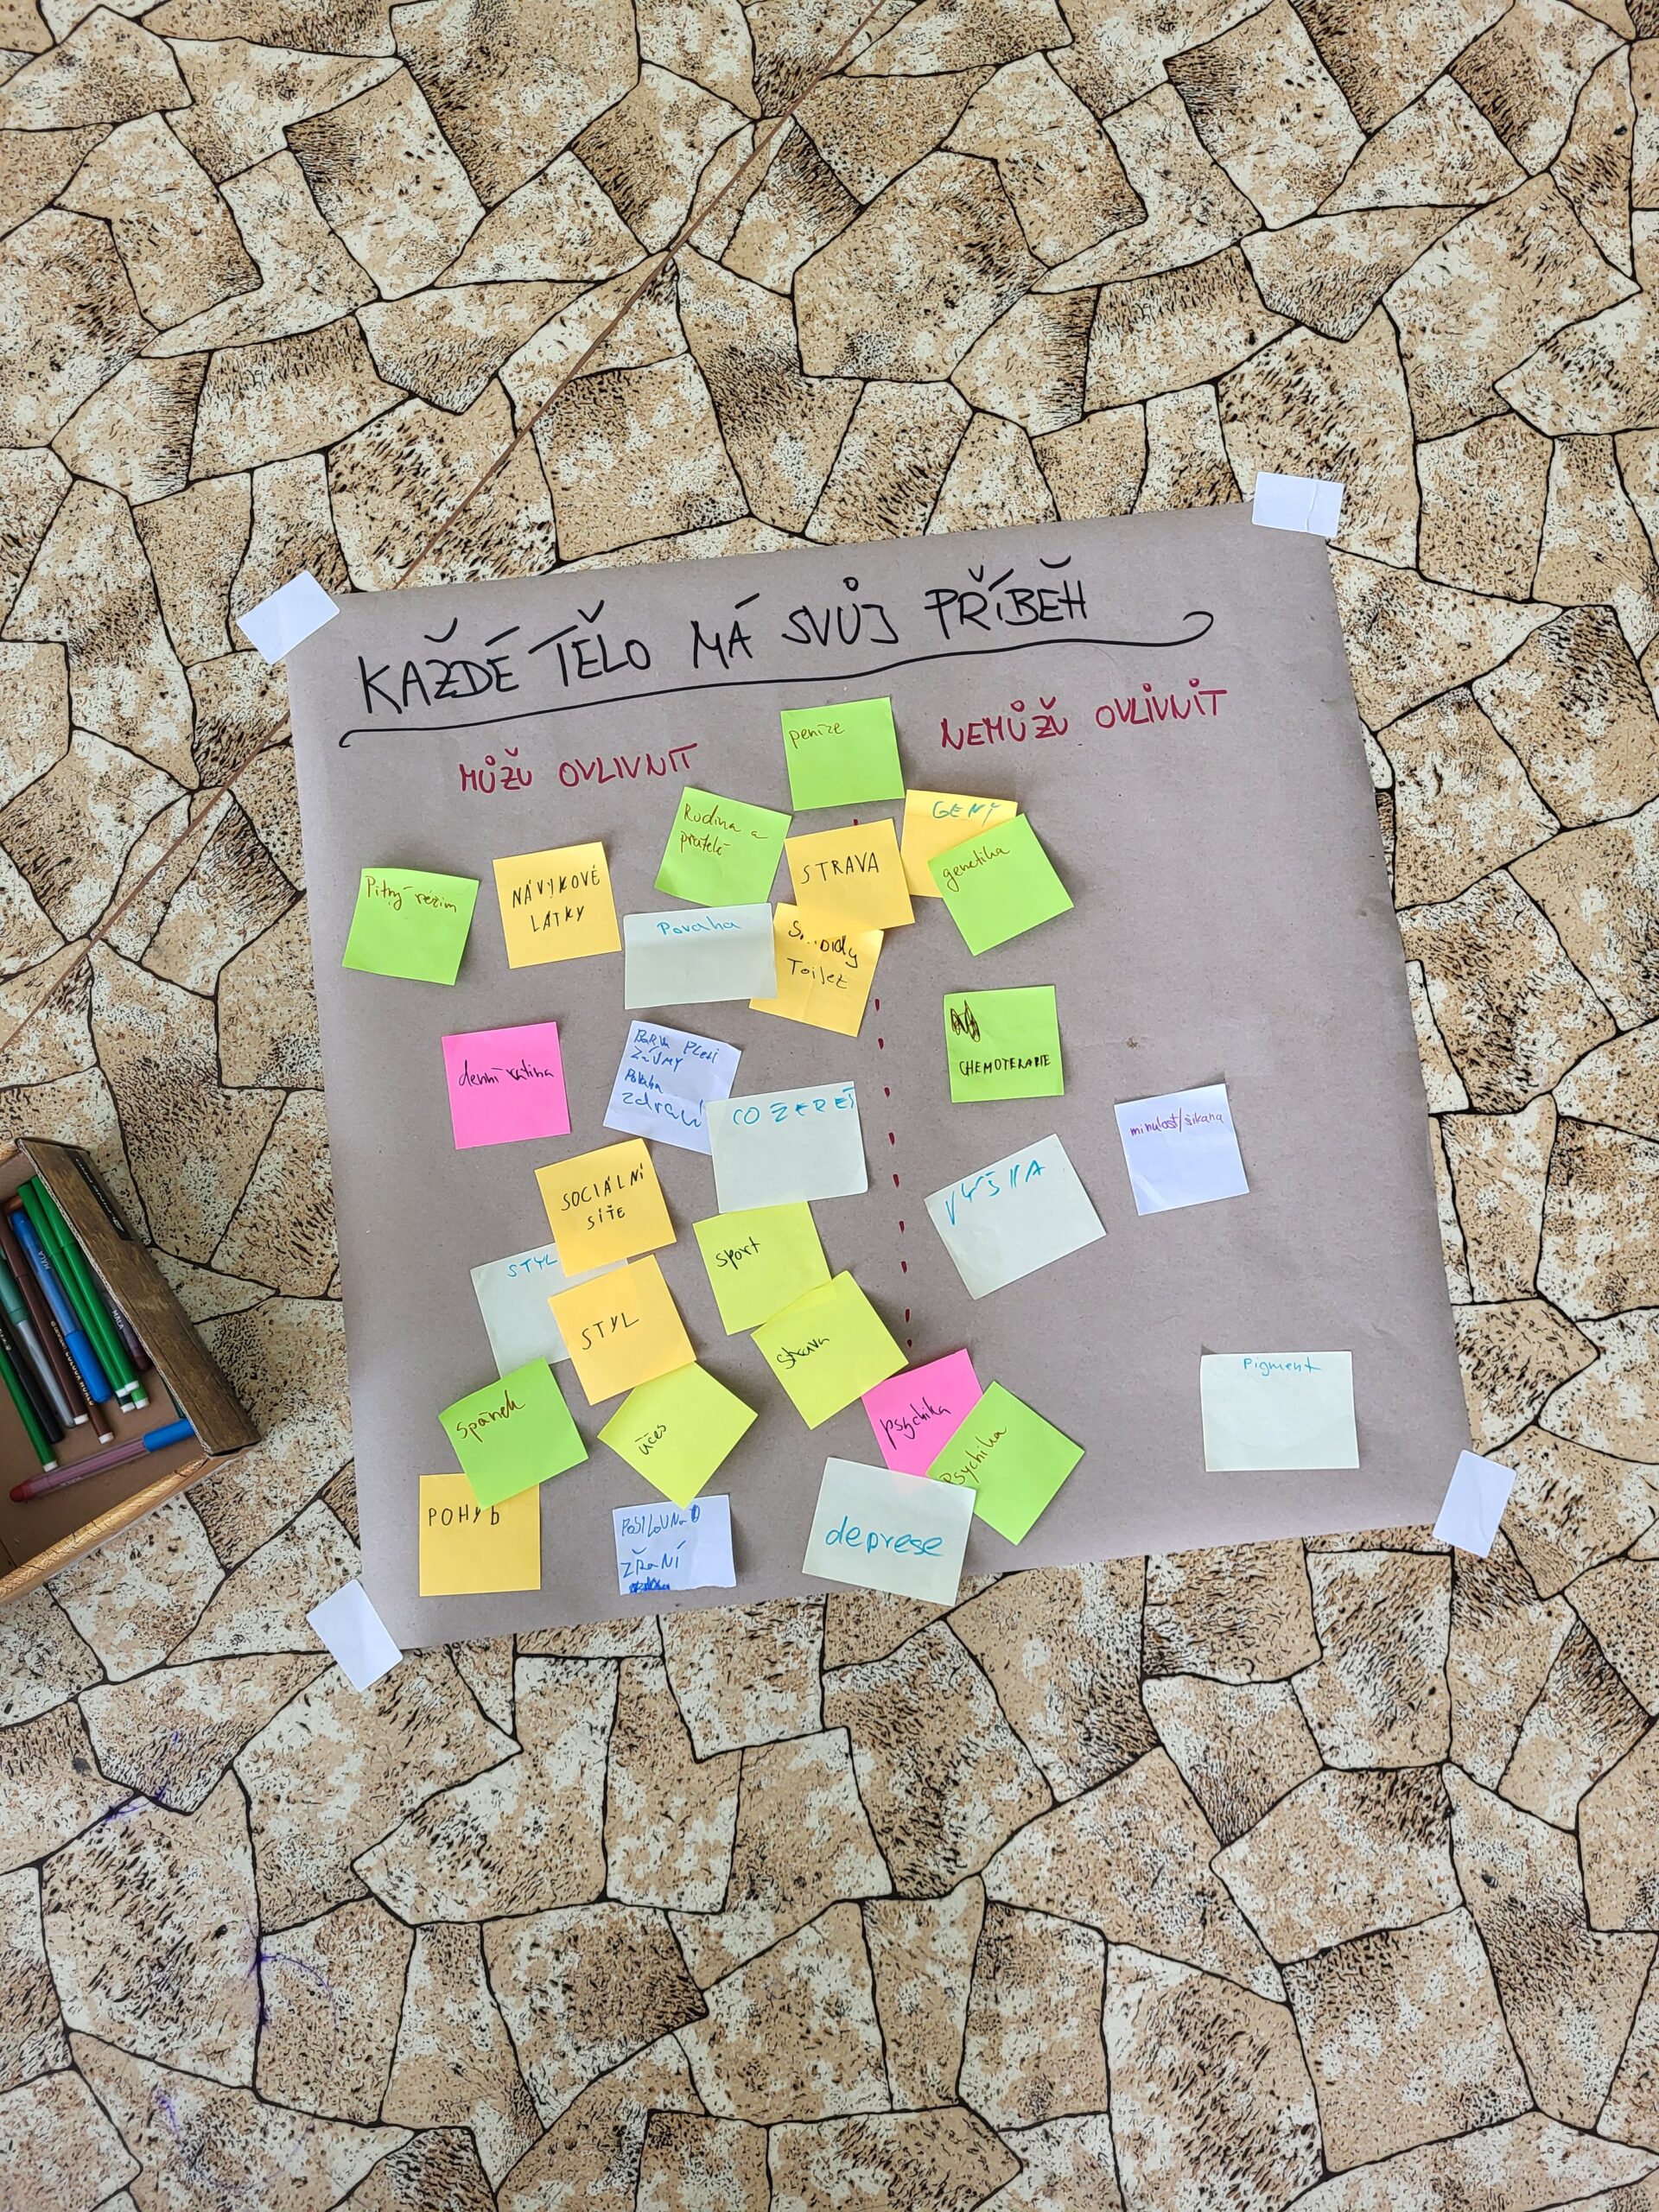 KAŽDÉ TĚLO MÁ SVŮJ PŘÍBĚH
MŮŽU OVLIVNIT
NEMŮŽU OVLIVNIT
peníze
Rodina a
přátelé
STRAVA
GENY
genetika
Pitný režim
NÁVYKOVÉ
LÁTKY
Povaha
Toilet
denní rutina
BARVA PLETI
Povaha
zdraví
CO ŽEREŠ
CHEMOTERAPIE
minulost/šikana
VÝŠKA
SOCIÁLNÍ
SÍTE
STYL
STYL
sport
strava
spánek
účes
psychika
Psychika
Pigment
POHYb
POSILOVNA
ZŘaNÍ
deprese